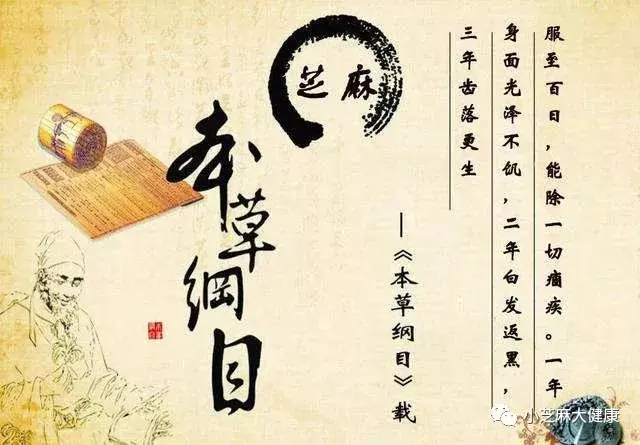 服至百日，能除一切痼疾。一年
身面光泽不饥，二年白发返黑，
三年齿落更生
——《本草纲目》载
芝麻
本草纲目
小芝麻大健康